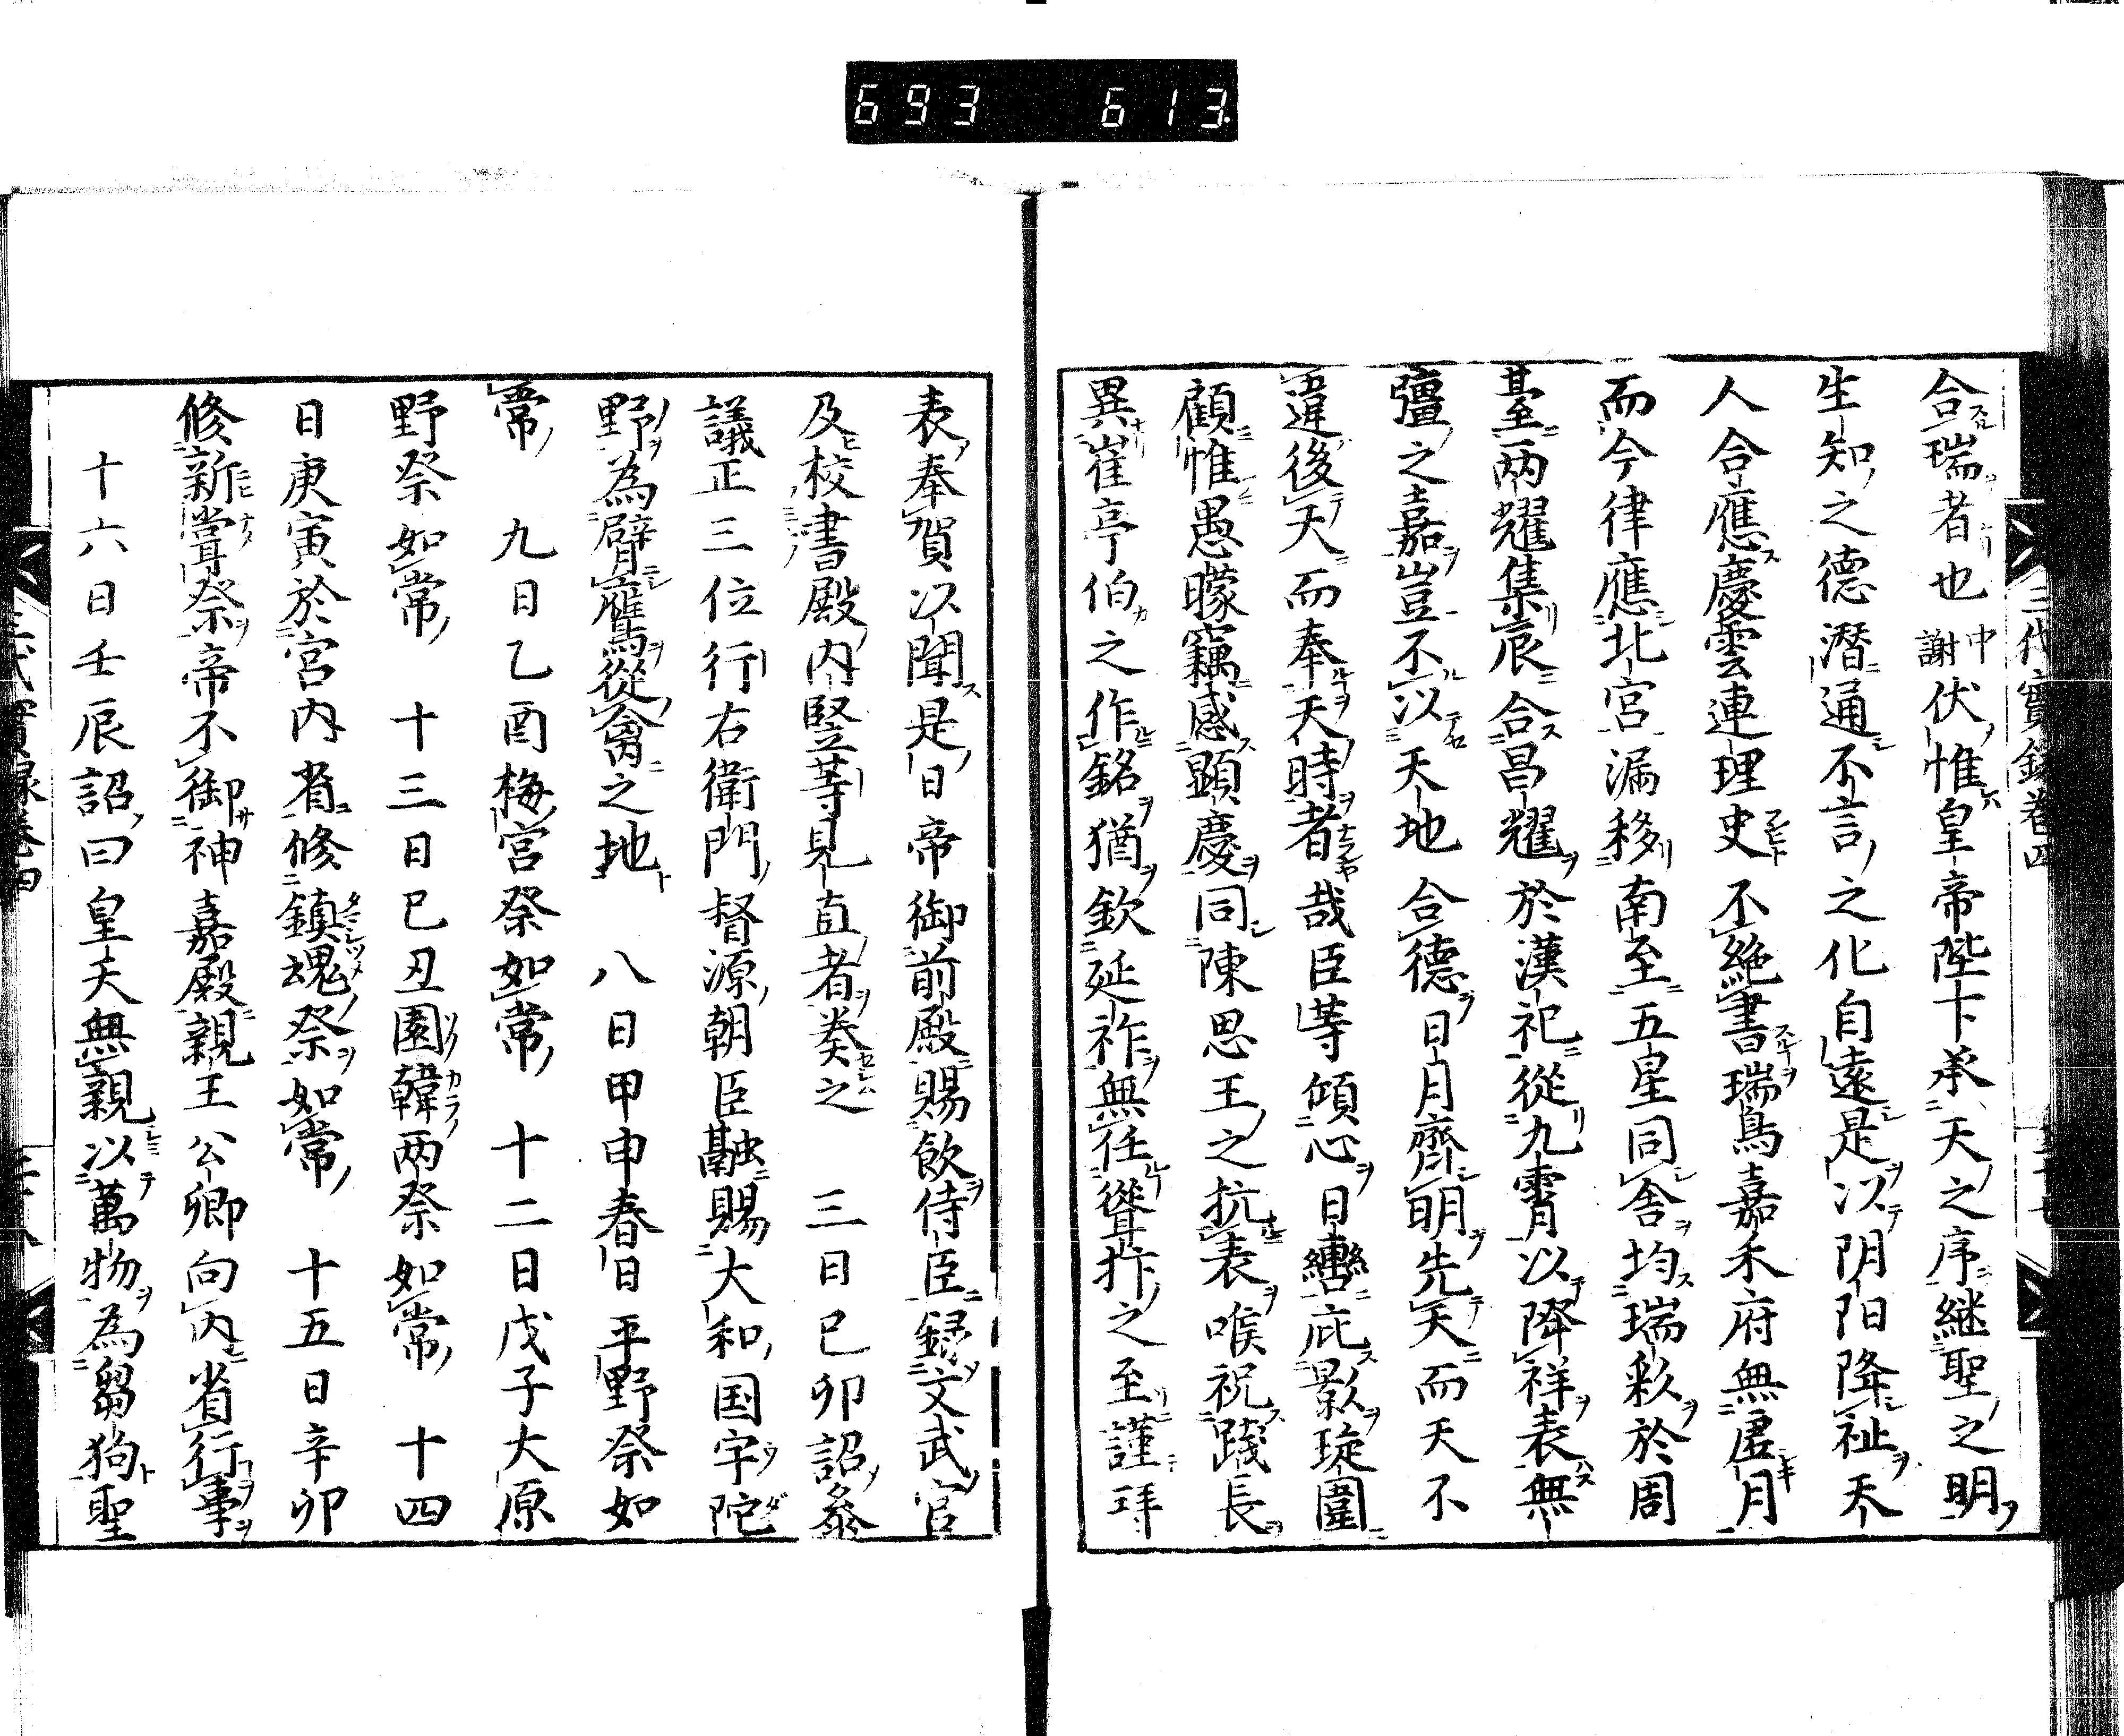 693 613
三代實錄卷四
合瑞者也中謝伏惟皇帝陛下承天之序継聖之明
生知之德潛通不言之化自遠是以阴阳降祉天
人合應慶雲連理史不絶書瑞鳥嘉禾府無虚月
而今律應北宮漏移南至五星同舎均瑞彩於周
基両耀集辰合昌耀於漢祀從九霄以降祥表無
彊之嘉豈不以天地合德日月齊明先天而天不
違後天而奉天時者哉臣等傾心日轡庇影琁圍
顧惟愚矇竊感顕慶同陳思王之抗表喉祝踐長
異崔亭伯之作銘猶欽延祚無任聳抃之至謹拜
表奉賀以聞是日帝御前殿賜飲侍臣録文武官
及校書殿内竪等見直者奏之 三日己卯詔叅
議正三位行右衛門督源朝臣融賜大和国宇陀
野為臂鷹從禽之地 八日甲申春日平野祭如
常 九日乙酉梅宮祭如常 十二日戊子大原
野祭如常 十三日己丑園韓両祭如常 十四
日庚寅於宮内省修鎮魂祭如常 十五日辛卯
修新甞祭帝不御神嘉殿親王公卿向内省行事
十六日壬辰詔曰皇天無親以萬物為芻狗聖
三代實録卷四